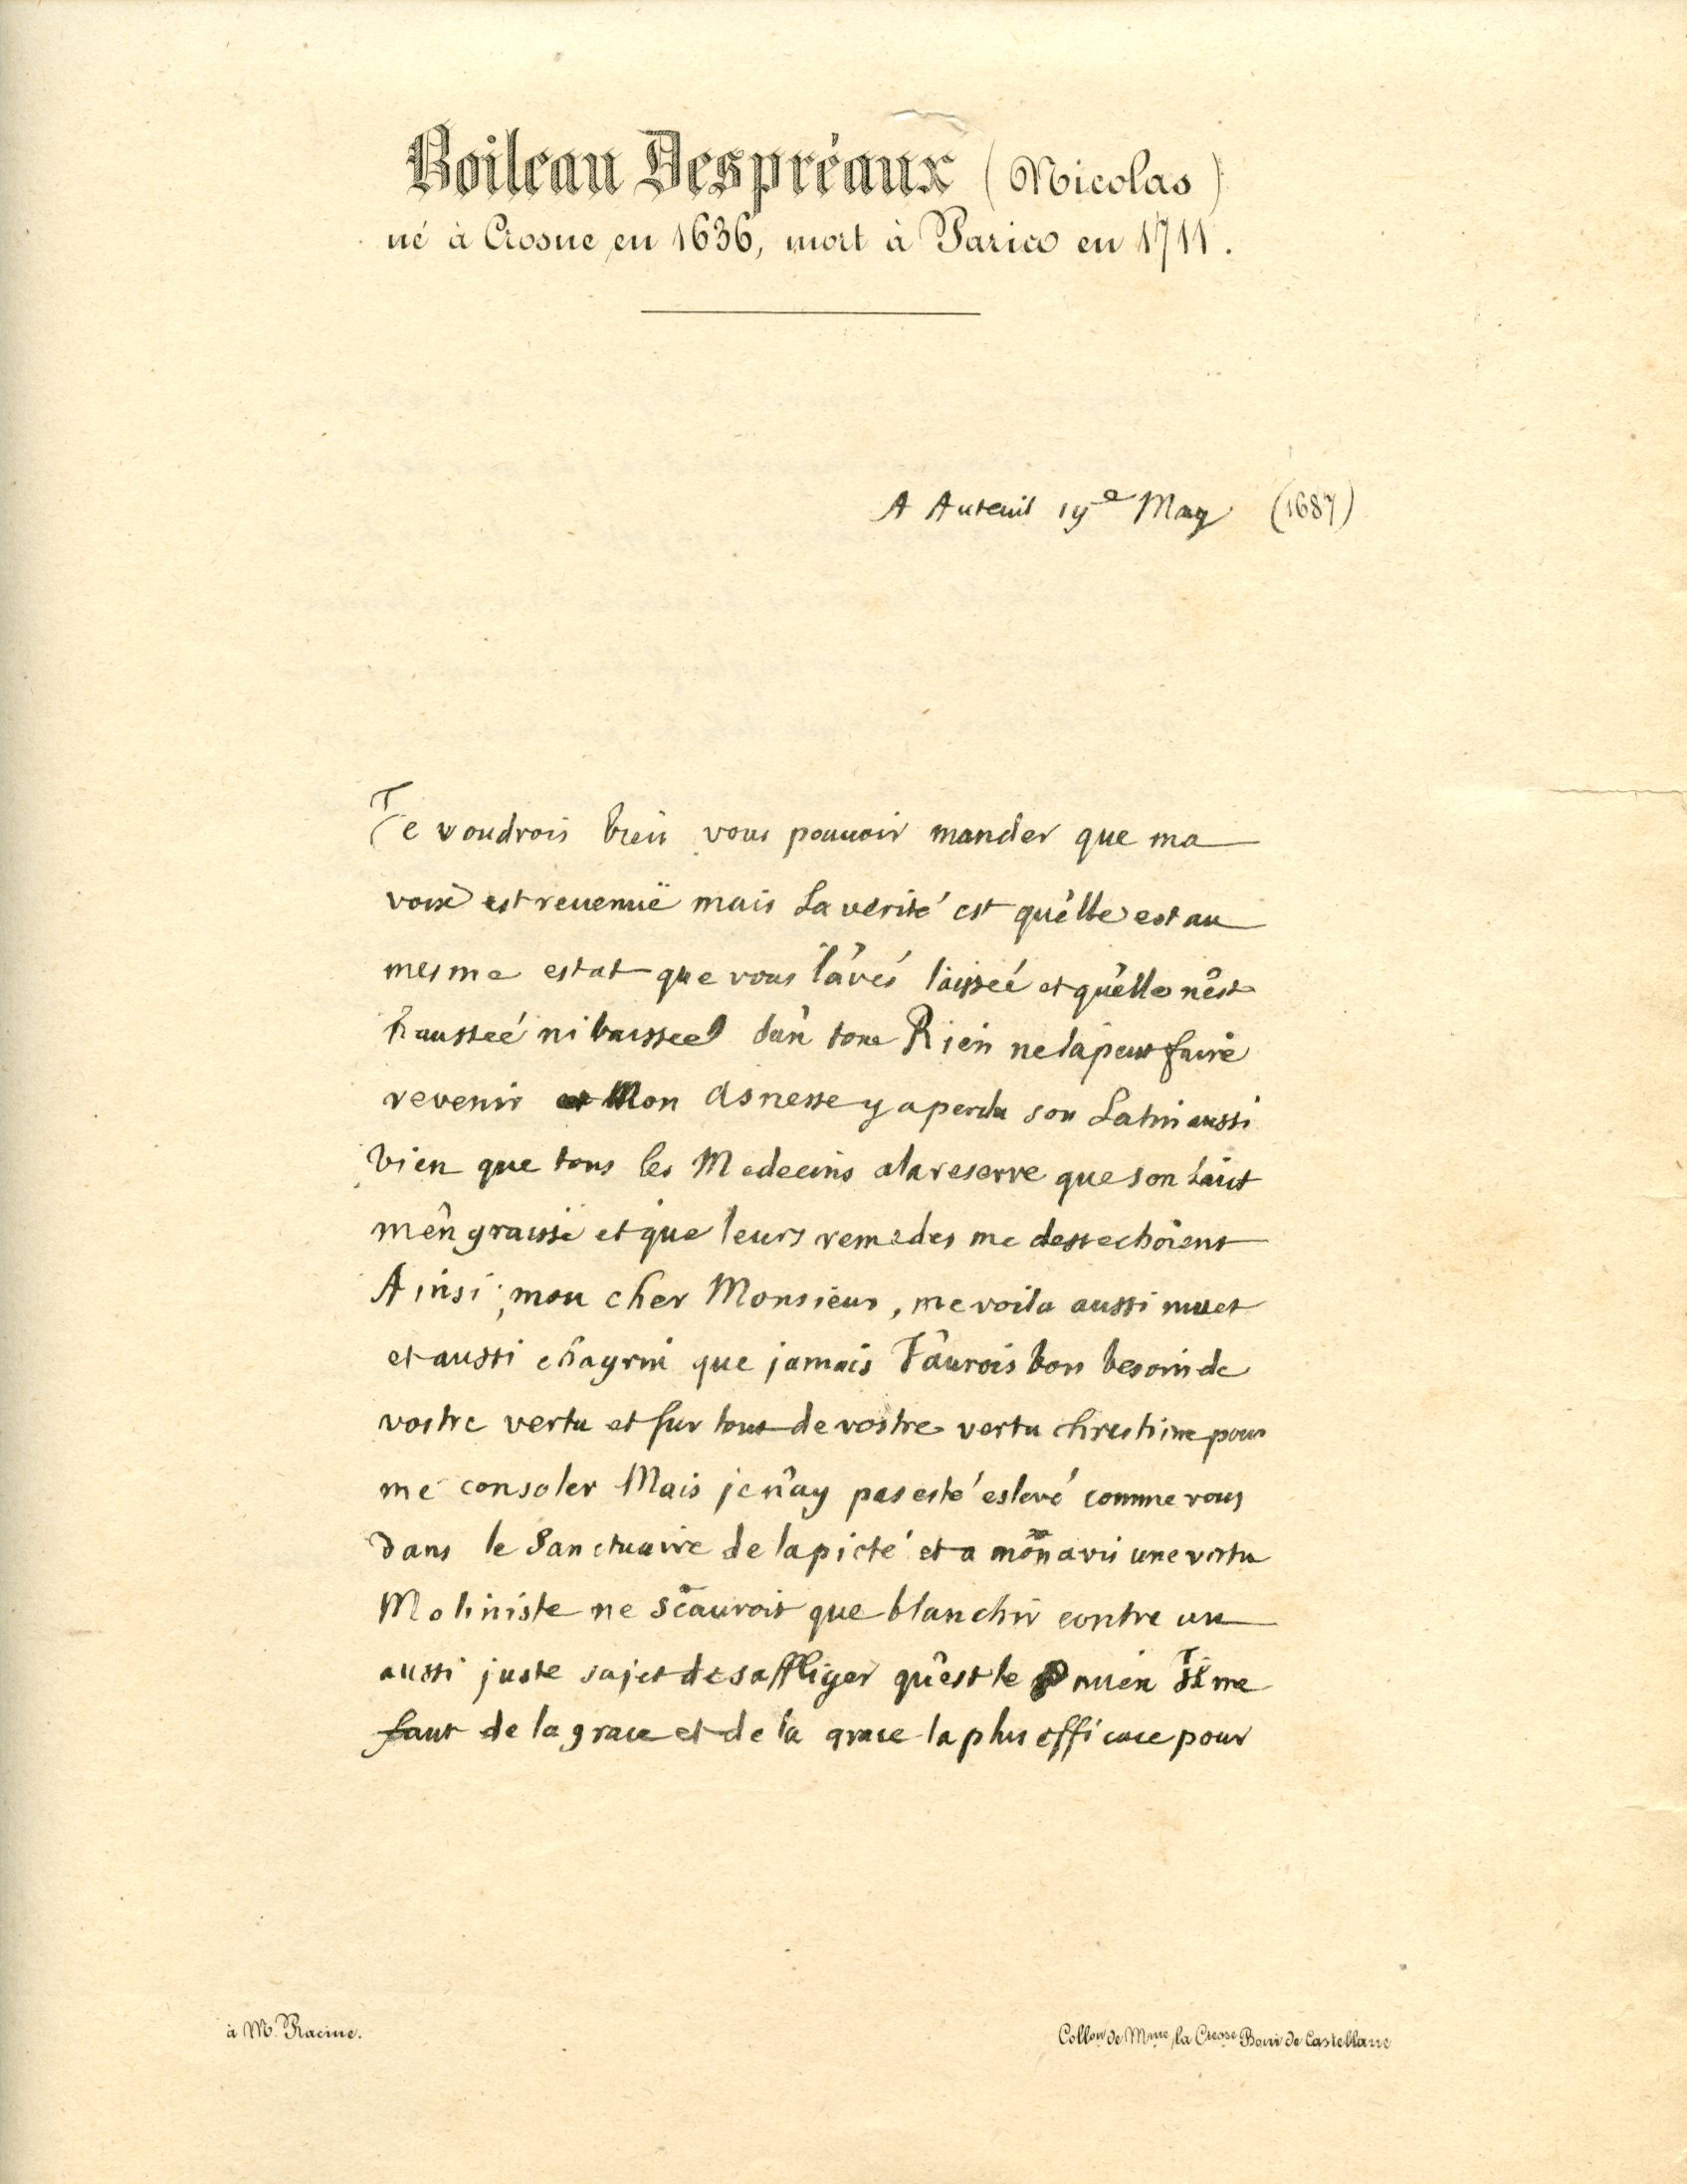 Boileau Despréaux (Nicolas)
né à Crosne en 1636, mort à Paris en 1711.
A Auteuil 19e May (1687)
Je voudrois bien vous pouuoir mander que ma
voix est reuenuë mais La verité est qu'elle est au
mesme estat que vous l'avés laissée et qu'elle n'est
haussée ni baissée d'un ton Rien ne la peut faire
revenir Mon Asnesse y a perdu son Latin aussi
bien que tous les Medecins a la reserve que son Laict
m'engraisse et que leurs remedes me dessechoient
Ainsi, mon cher Monsieur, me voila aussi muet
et aussi chagrin que jamais J'aurois bon besoin de
vostre vertu et sur tout de vostre vertu chrestiene pour
me consoler Mais je n'ay pas esté eslevé comme vous
dans le Sanctuaire de la pieté et a mon avis une vertu
Moliniste ne scauroit que blanchir contre un
aussi juste sujet de s'affliger qu'est le mien Il me
faut de la grace et de la grace la plus efficace pour
à Mr. Racine.
Collon de Mme la Ctesse Boni de Castellane